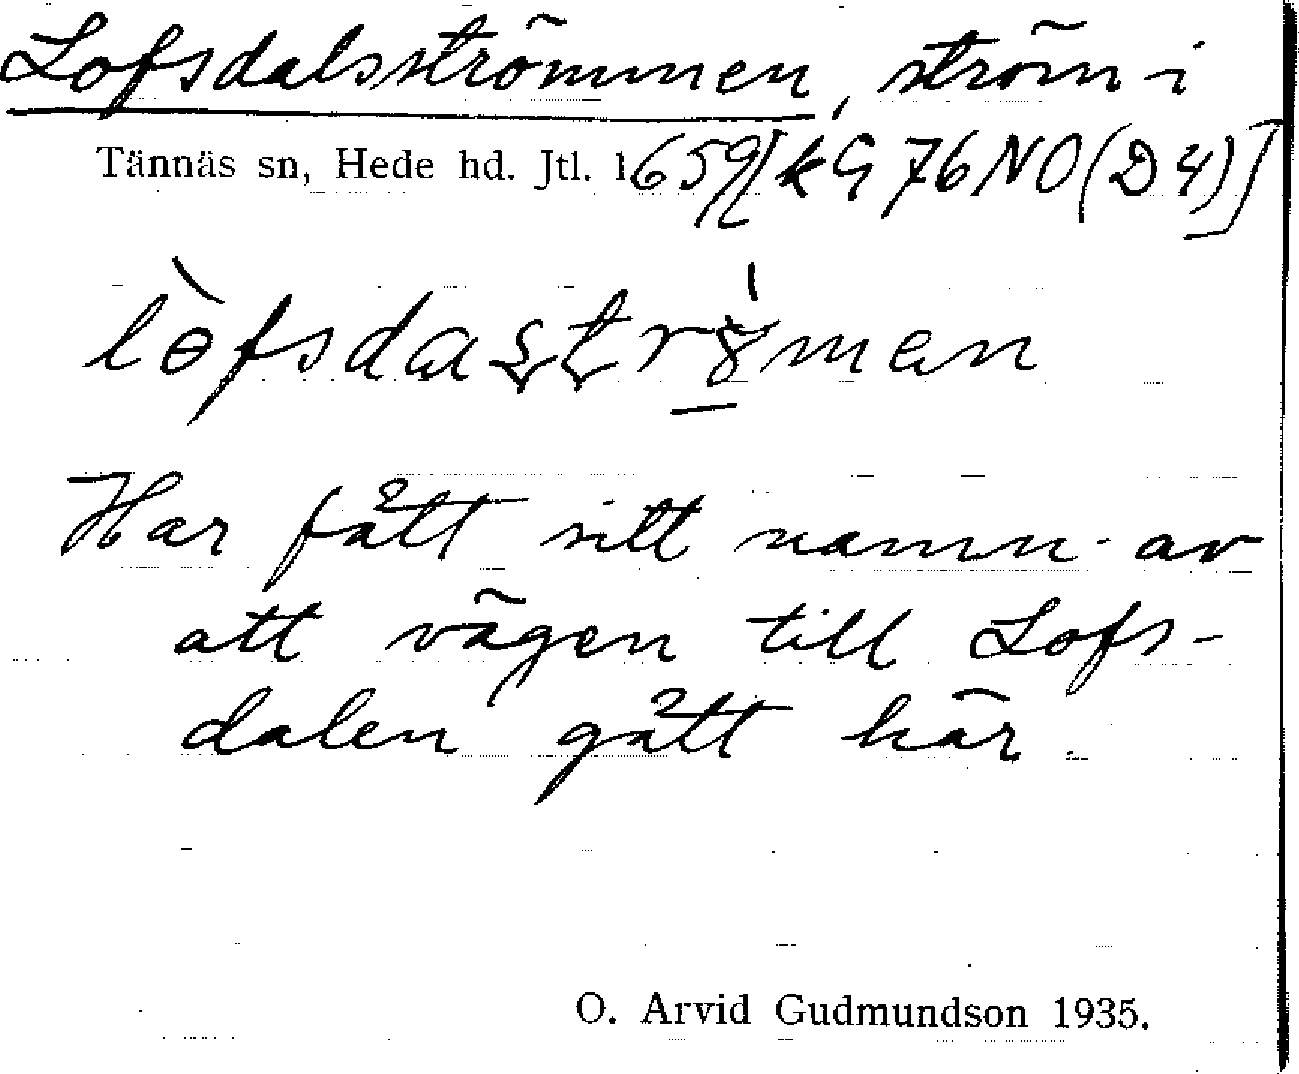 Lofsdalsströmmen, ström i
Tännäs sn, Hede hd. Jtl. 1659 [kG 76 NO (D 4)]
Har fått sitt namn av
att vägen till Lofs-
dalen gått här.
O. Arvid Gudmundson 1935.